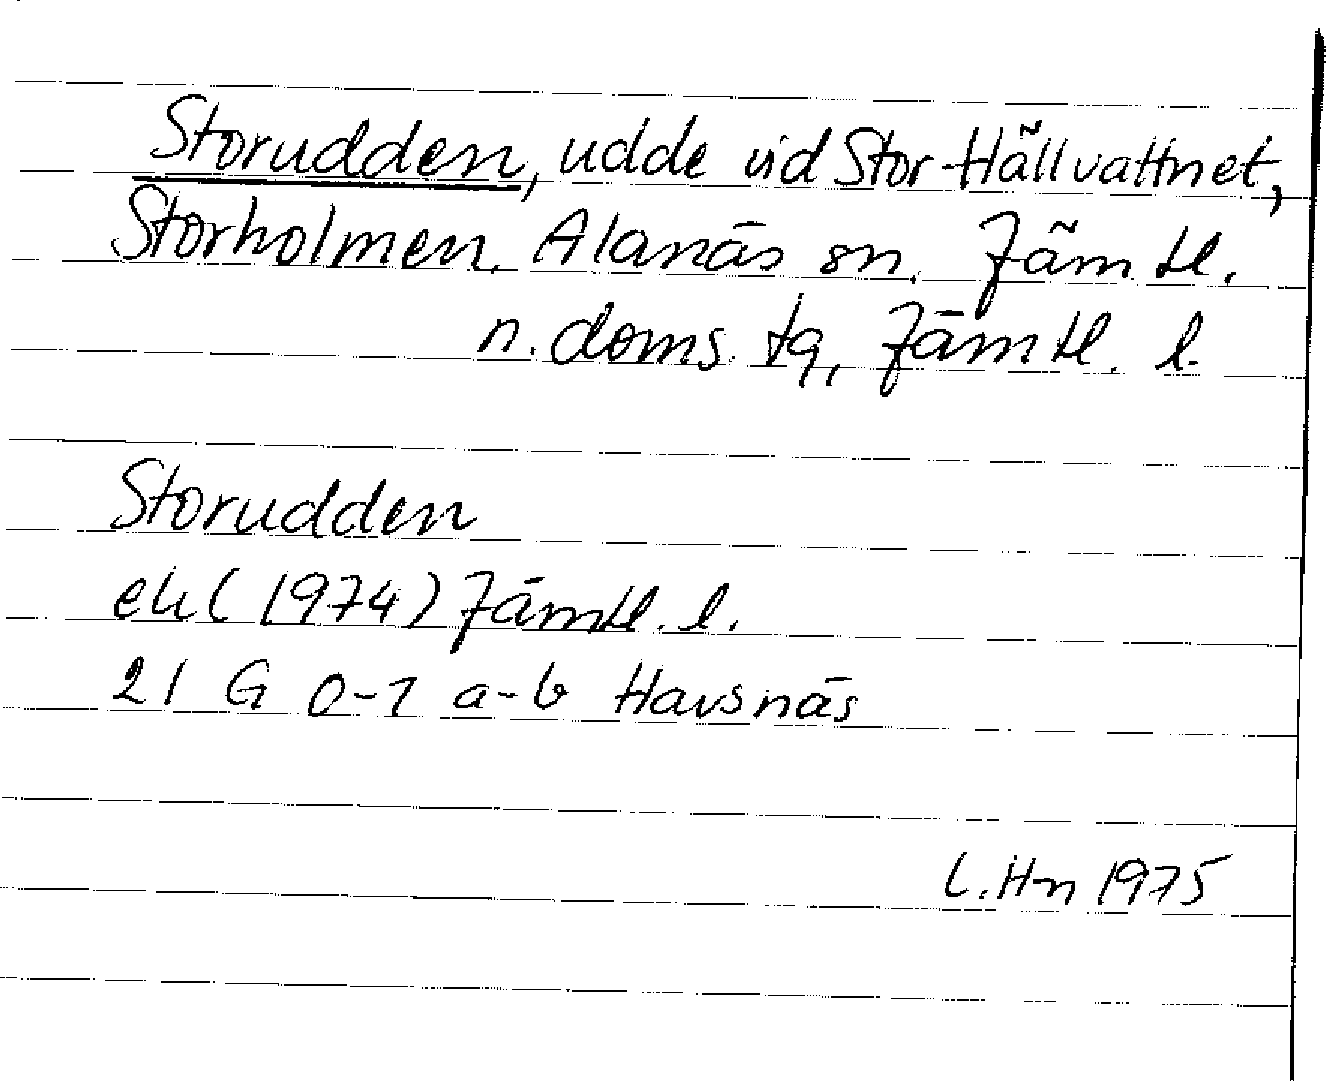 Storudden, udde vid Stor-Hällvattnet,
Storholmen. Alanäs sn. Jämtl.
n. doms. tg, Jämtl. l.
Storudden
ek (1974) Jämtl. l.
21 G 0-1 a-b Havsnäs
L. Hn 1975